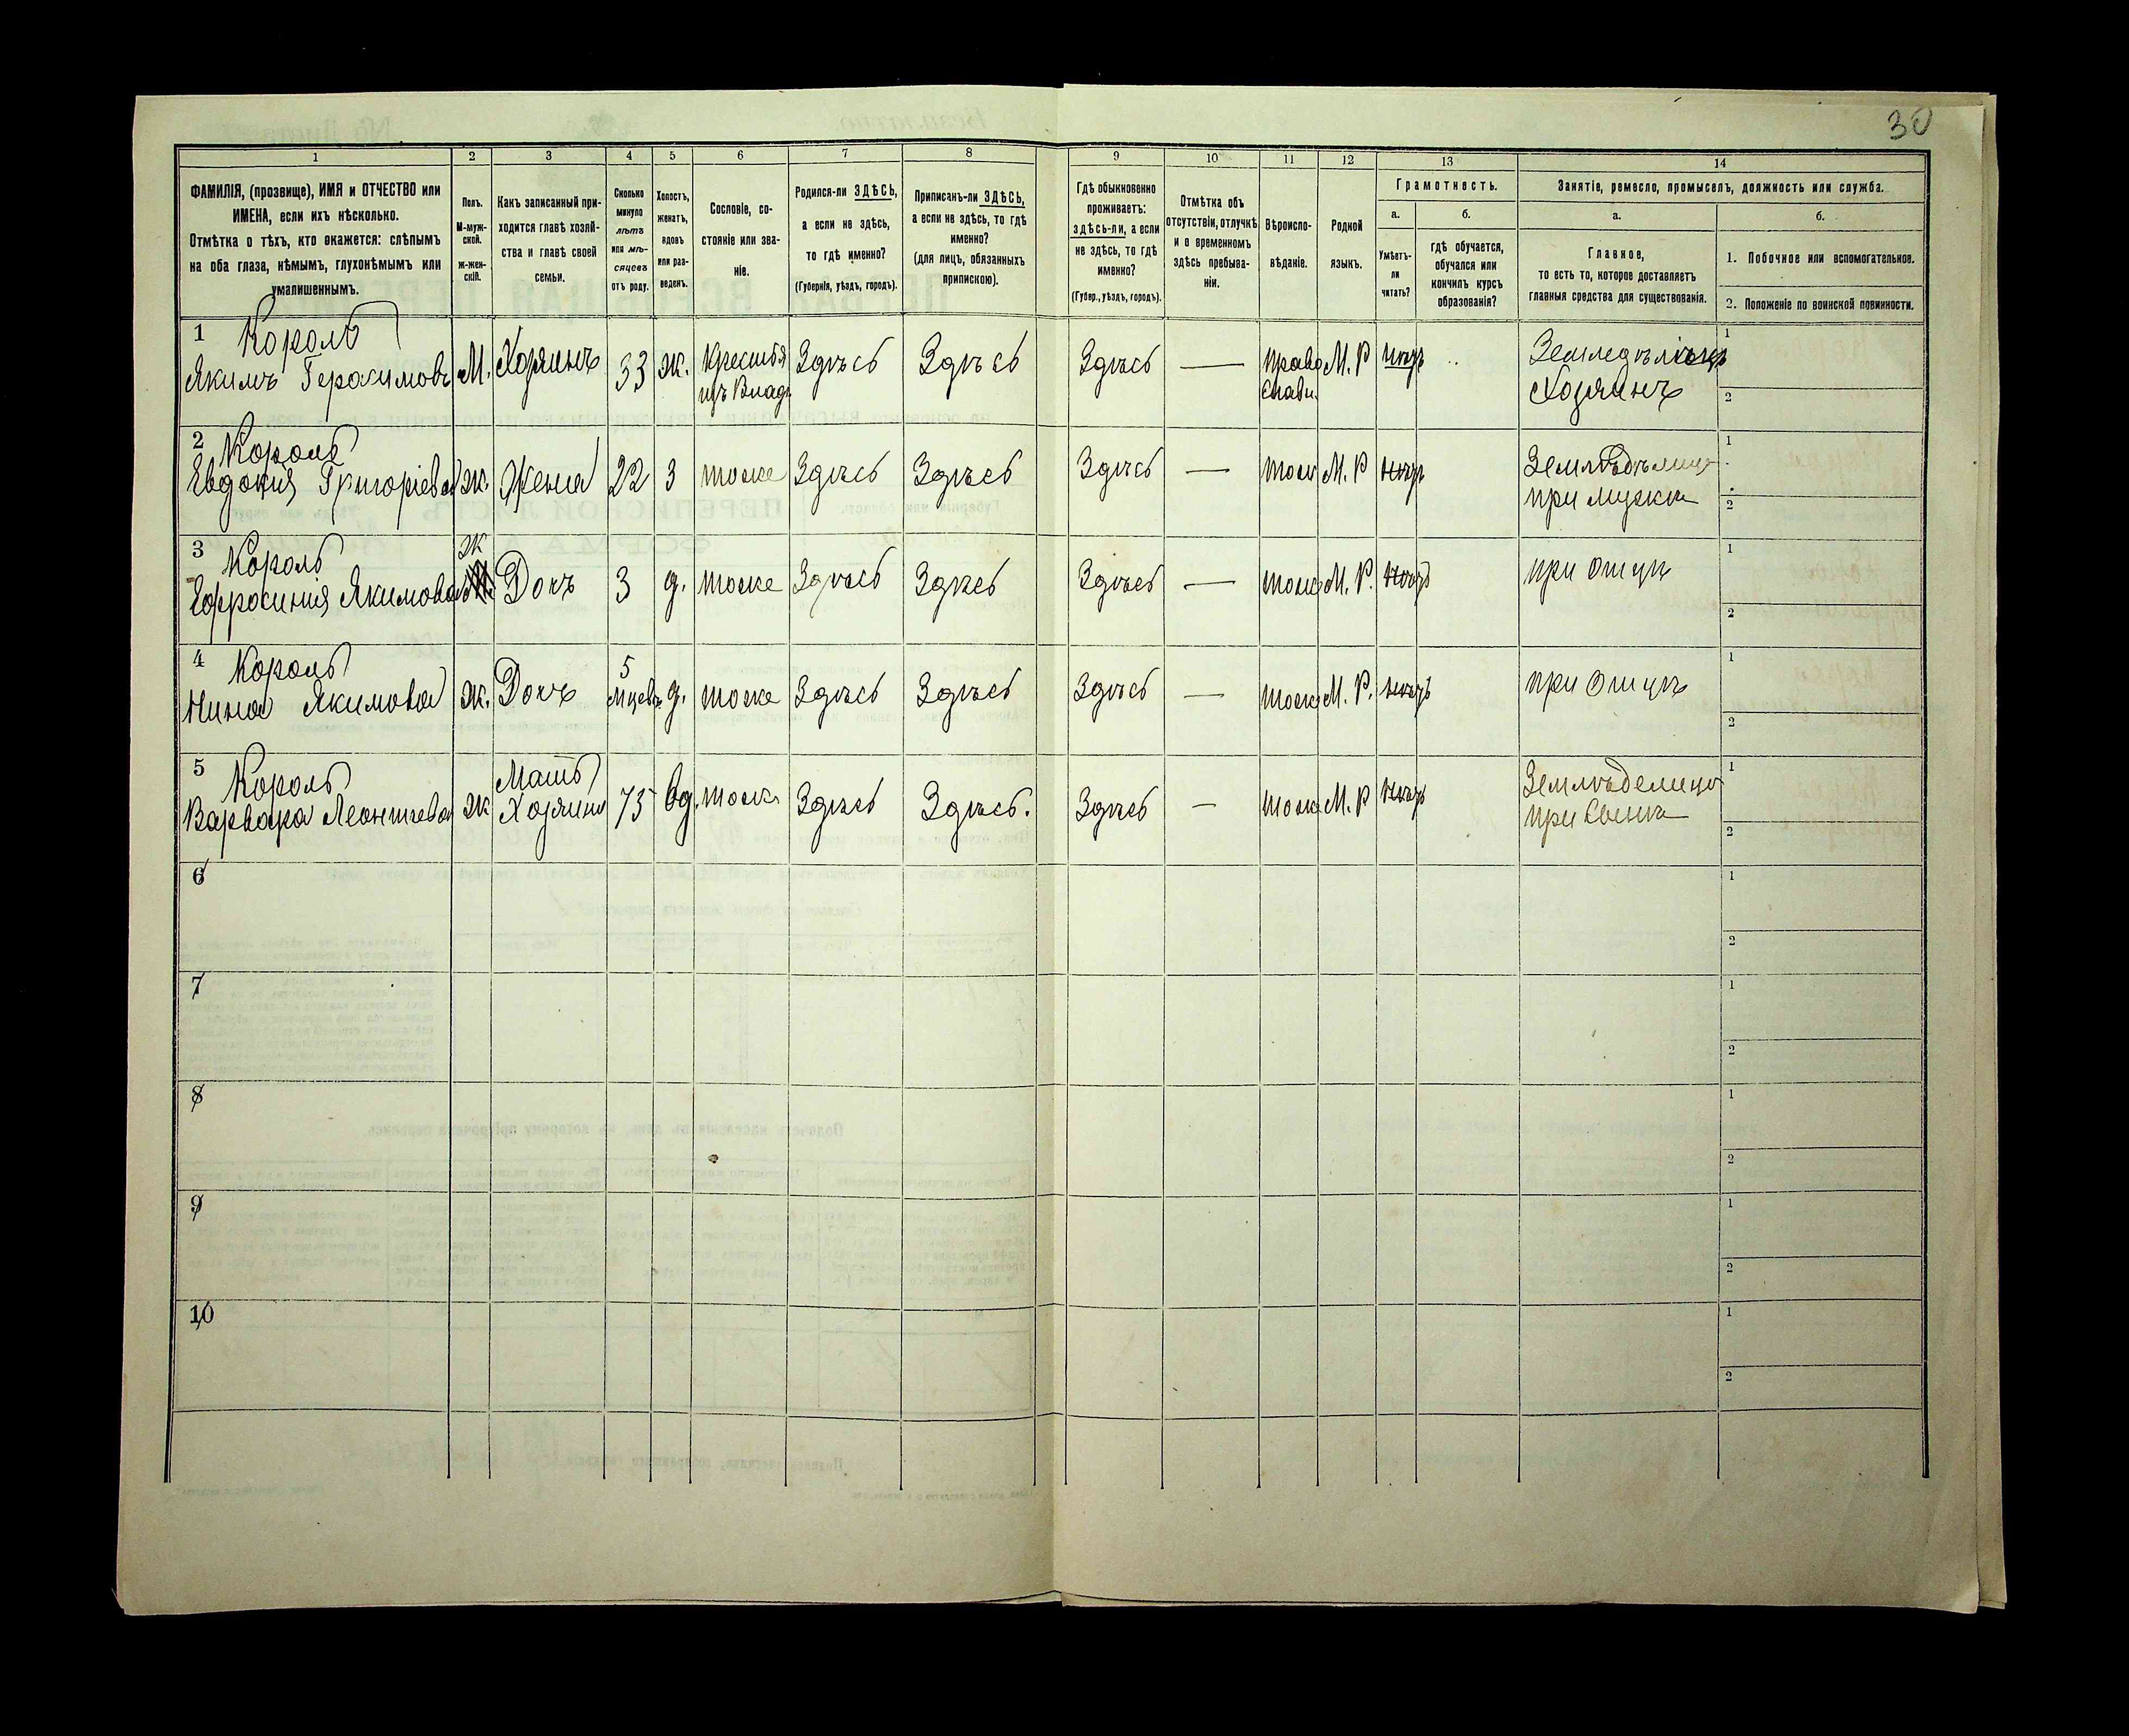 30
1 2 3 4 5 6 7 8 9 10 11 12 13 14
ФАМИЛІЯ, (прозвище), ИМЯ и ОТЧЕСТВО или
ИМЕНА, если ихъ нѣсколько.
Отмѣтка о тѣхъ, кто окажется: слѣпымъ
на оба глаза, нѣмымъ, глухонѣмымъ или
умалишеннымъ.
Полъ.
М-муж-
ской.
ж-жен-
скій.
Какъ записанный при-
ходится главѣ хозяй-
ства и главѣ своей
семьи.
Сколько
минуло
лѣтъ
или мѣ-
сяцевъ
отъ роду.
Холостъ,
женатъ,
вдовъ
или раз-
веденъ.
Сословіе, со-
стояніе или зва-
ніе.
Родился-ли ЗДѢСЬ,
а если не здѣсь,
то гдѣ именно?
(Губернія, уѣздъ, городъ).
Приписанъ-ли ЗДѢСЬ,
а если не здѣсь, то гдѣ
именно?
(для лицъ, обязанныхъ
припискою).
Гдѣ обыкновенно
проживаетъ:
здѣсь-ли, а если
не здѣсь, то гдѣ
именно?
(Губер., уѣздъ, городъ).
Отмѣтка объ
отсутствіи, отлучкѣ
и о временномъ
здѣсь пребыва-
ніи.
Вѣроиспо-
вѣданіе.
Родной
языкъ.
Грамотность.
а. б.
Умѣетъ-
ли
читать?
гдѣ обучается,
обучался или
кончилъ курсъ
образованія?
Занятіе, ремесло, промыселъ, должность или служба.
а. б.
Главное,
то есть то, которое доставляетъ
главныя средства для существованія.
1. Побочное или вспомогательное.
2. Положеніе по воинской повинности.
1 Король
Якимъ Герасимовъ М. Хозяинъ 33 ж. Крестья Здѣсь Здѣсь Здѣсь — Право М. Р Земледѣлецъ 1
изъ Влад. Слави. Хозяинъ 2
2 Король
Евдокія Григоріева ж. Жена 22 З тоже Здѣсь Здѣсь Здѣсь — тоже М. Р 1
при мужѣ 2
3 Король ж
Ефросинія Якимова Дочъ 3 д. тоже Здѣсь Здѣсь Здѣсь — тоже М. Р. при Отцѣ 1
2
4 Король 5
Нина Якимова ж. Дочъ мцевъ д. тоже Здѣсь Здѣсь Здѣсь — тоже М. Р. при Отцѣ 1
2
5 Король Мать
Варвара Леонтіева ж Хозяина 75 вд. тоже Здѣсь Здѣсь. Здѣсь — тоже М. Р Землѣделица 1
при Сынѣ 2
6 1
2
7 1
2
8 1
2
9 1
2
10 1
2